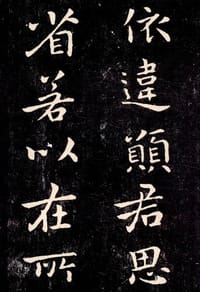 依違願君思
省若以在所